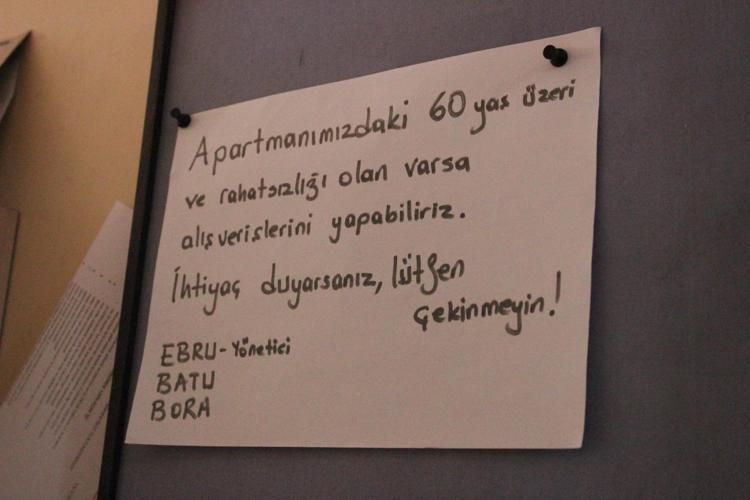 Apartmanımızdaki 60 yas üzeri
ve rahatsızlığı olan varsa
alışverişlerini yapabiliriz.
İhtiyaç duyarsanız, lütfen
çekinmeyin!
EBRU - Yönetici
BATU
BORA